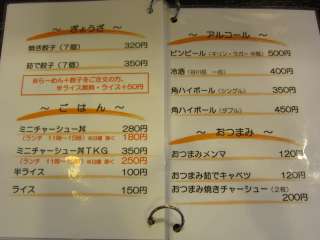 ～ ぎょうざ ～
焼き餃子（7個） 320円
茹で餃子（7個） 350円
らーめん＋餃子をご注文の方、
半ライス無料・ライス＋50円
～ ごはん ～
ミニチャーシュー丼 280円
180円
ミニチャーシュー丼TKG 350円
250円
半ライス 100円
ライス 150円
～ アルコール ～
ビンビール（キリン・ラガー 中瓶） 500円
冷酒 400円
角ハイボール（シングル） 350円
角ハイボール（ダブル） 450円
～ おつまみ ～
おつまみメンマ 120円
おつまみ茹でキャベツ 120円
おつまみ焼きチャーシュー（2枚）
200円